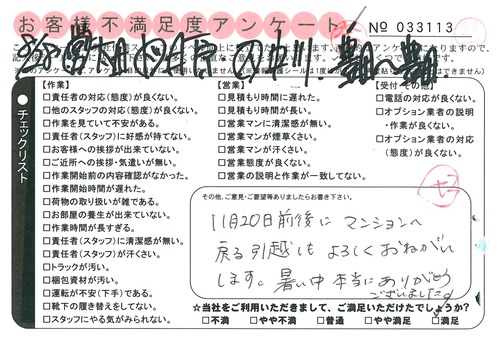 お客様不満足度アンケート
No 033113
チェックリスト
【作業】
□責任者の対応(態度)が良くない。
□他のスタッフの対応(態度)が良くない。
□作業を見ていて不安がある。
□責任者(スタッフ)に好感が持てない。
□お客様への挨拶が出来ていない。
□ご近所への挨拶・気遣いが無い。
□作業開始前の内容確認がなかった。
□作業開始時間が遅れた。
□荷物の取り扱いが雑である。
□お部屋の養生が出来ていない。
□作業時間が長すぎる。
□責任者(スタッフ)に清潔感が無い。
□責任者(スタッフ)が汗くさい。
□トラックが汚い。
□梱包資材が汚い。
□運転が不安(下手)である。
□靴下の履き替えをしてない。
□スタッフにやる気がみられない。
【営業】
□見積もり時間に遅れた。
□見積もり時間が長い。
□営業マンに清潔感が無い。
□営業マンが煙草くさい。
□営業マンが汗くさい。
□営業態度が良くない。
□営業の説明と作業が一致してない。
【受付・その他】
□電話の対応が良くない。
□オプション業者の説明
・作業が良くない。
□オプション業者の対応
(態度)が良くない。
その他、ご意見・ご要望等ありましたらお書き下さい。
11月20日前後に マンションへ
戻る引越しも よろしくおねがい
します。暑い中 本当に ありがとう
ございました。
☆当社をご利用いただきまして、ご満足いただけたでしょうか?
□不満 □やや不満 □普通 □やや満足 □満足